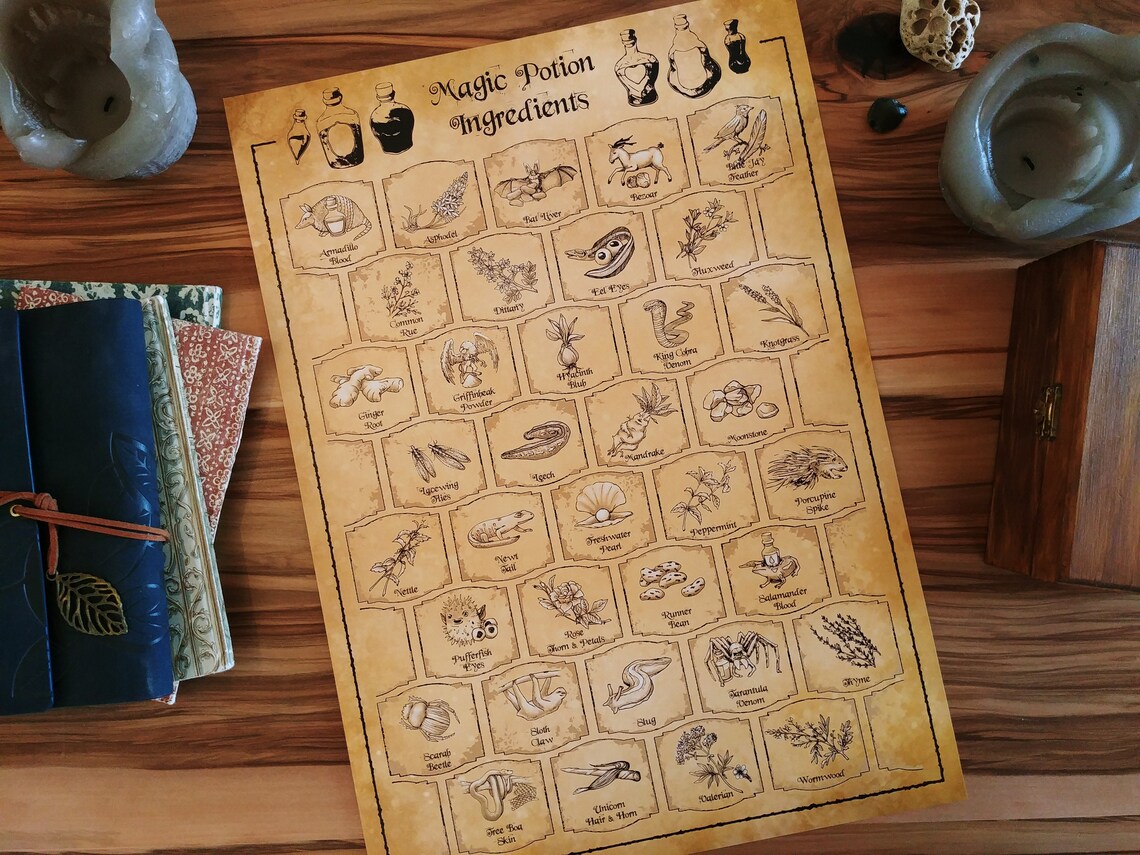 Magic Potion
Ingredients
Armadillo
Blood
Asphodel
Bat Liver
Bezoar
Blue Jay
Feather
Common
Rue
Dittany
Eel Eyes
Fluxweed
Ginger
Root
Griffinbeak
Powder
Hyacinth
Bulb
King Cobra
Venom
Knotgrass
Lacewing
Flies
Leech
Mandrake
Moonstone
Nettle
Newt
Tail
Freshwater
Pearl
Peppermint
Porcupine
Spike
Pufferfish
Eyes
Rose
Thorn & Petals
Runner
Bean
Salamander
Blood
Scarab
Beetle
Sloth
Claw
Slug
Tarantula
Venom
Thyme
Tree Boa
Skin
Unicorn
Hair & Horn
Valerian
Wormwood